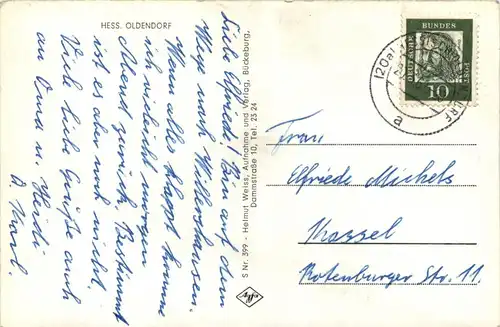 HESS. OLDENDORF
Liebe Elfriede! Bin auf dem
Wege nach Willershausen.
Wenn alles klappt komme
ich vielleicht morgen
Abend zurück. Bestimmt
ist es aber noch nicht.
Viele liebe Grüße auch
an Oma u. Heidi
S Nr. 399 - Helmut Weiss, Aufnahme und Verlag, Bückeburg,
Dammstraße 10, Tel. 25 24
DEUTSCHE
BUNDES
POST
10
(20a)
a
Frau
Elfriede Michels
Kassel
Rotenburger Str. 11.